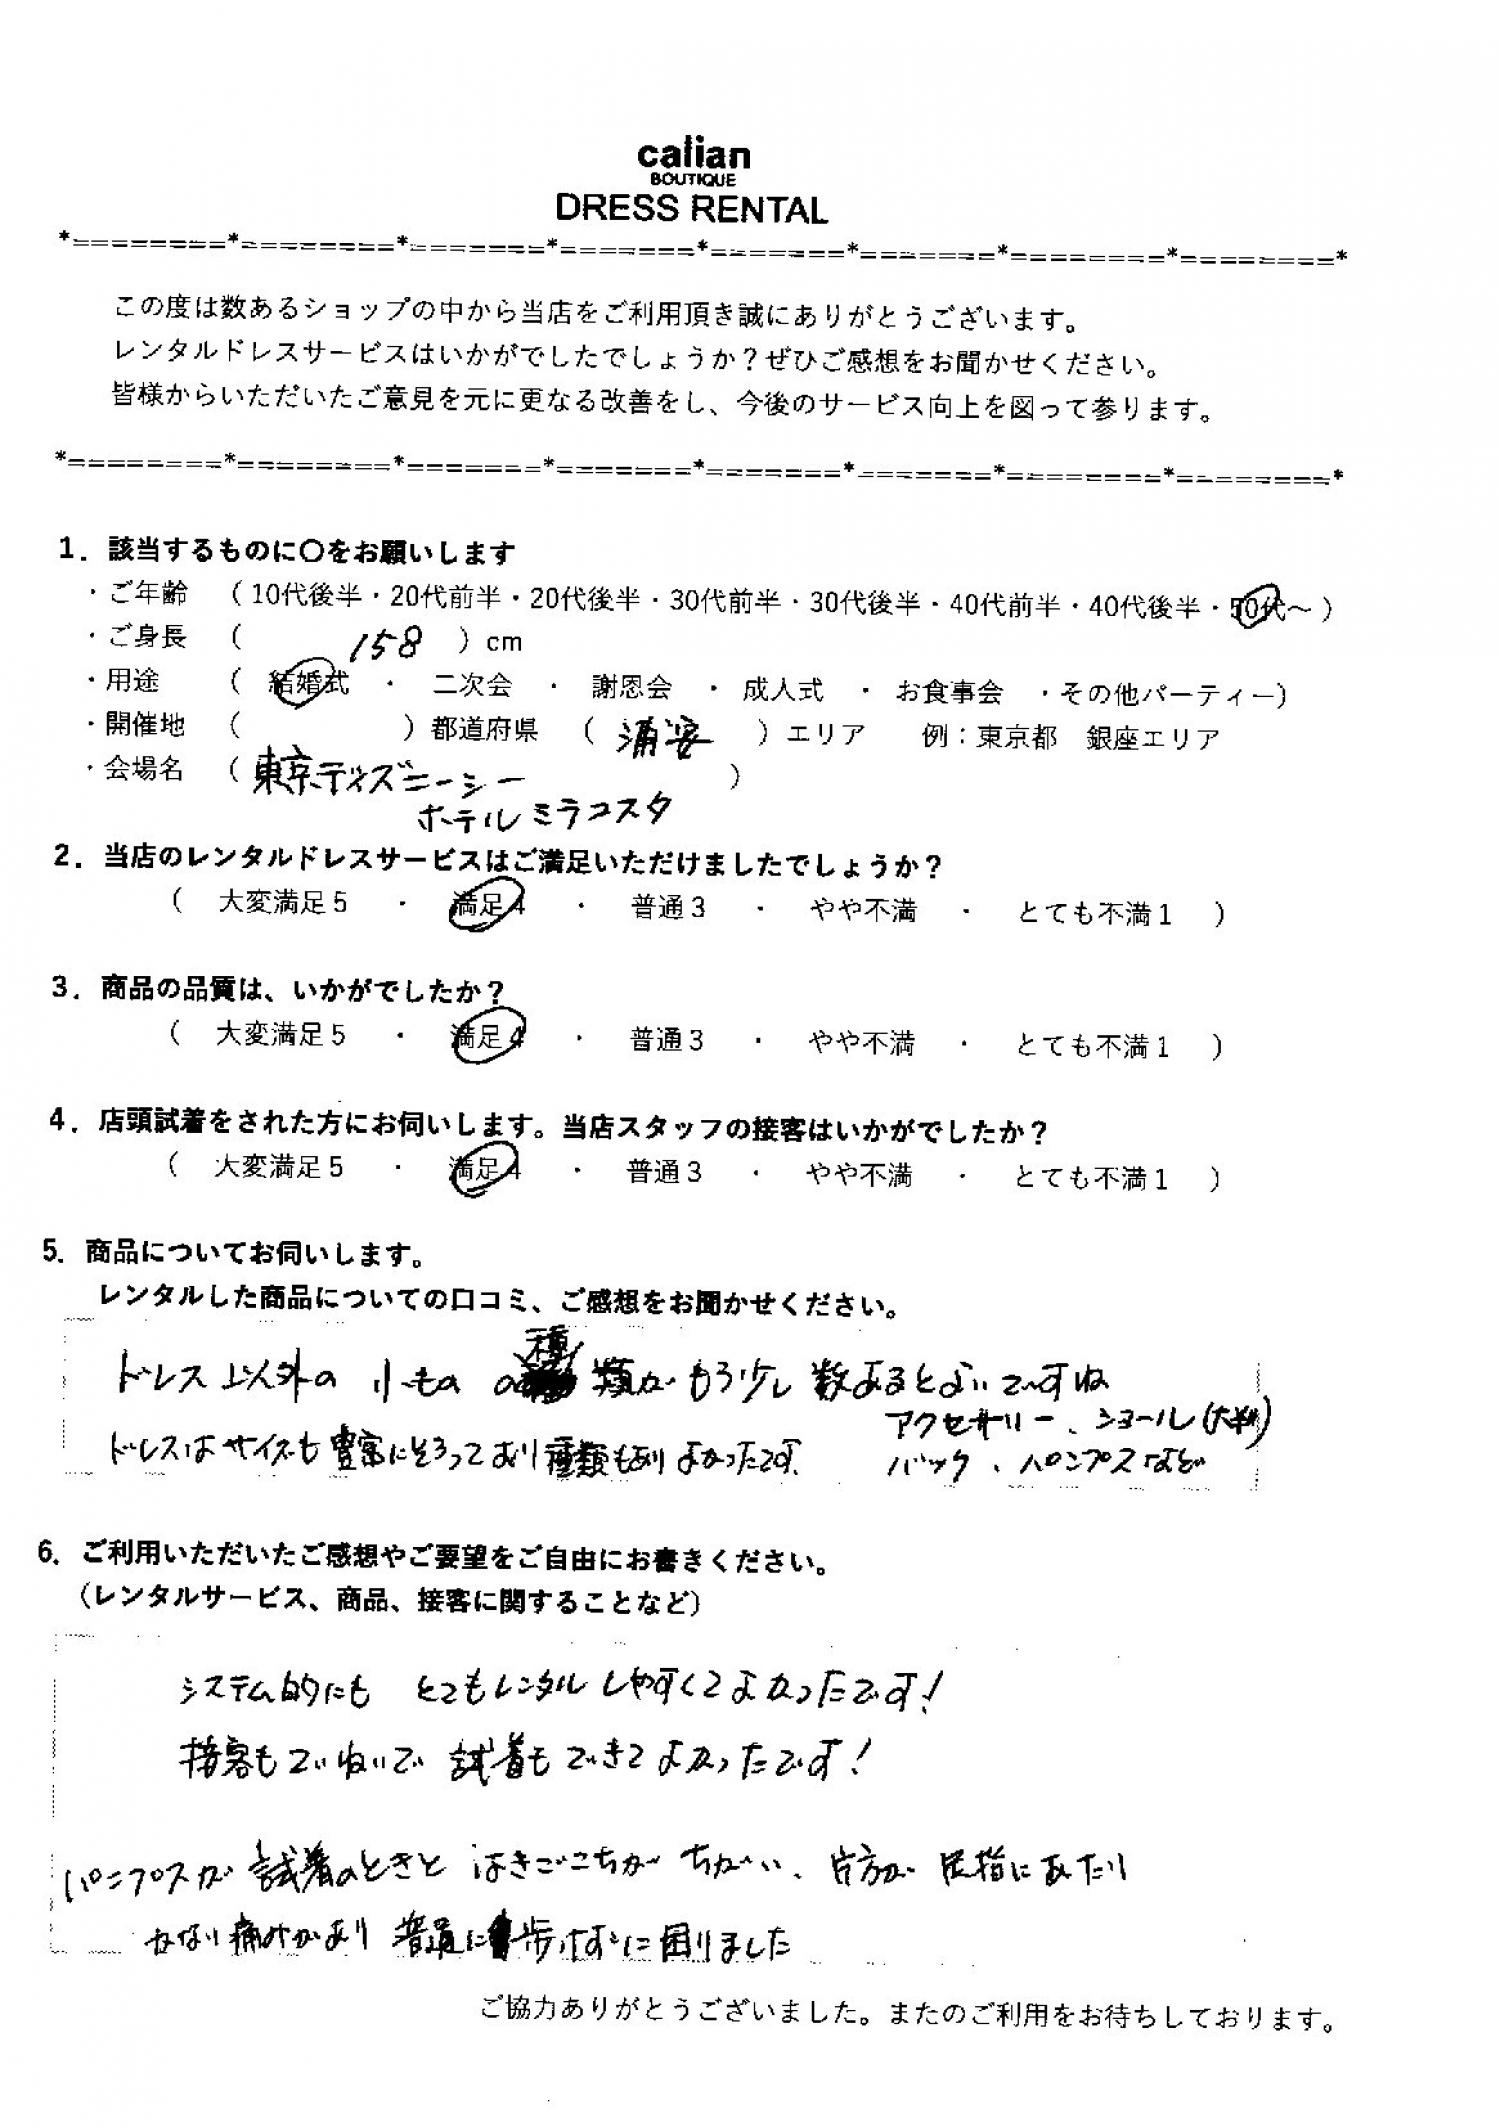 calian
BOUTIQUE
DRESS RENTAL
*========*========*=======*=======*=======*=======*========*========*
この度は数あるショップの中から当店をご利用頂き誠にありがとうございます。
レンタルドレスサービスはいかがでしたでしょうか？ぜひご感想をお聞かせください。
皆様からいただいたご意見を元に更なる改善をし、今後のサービス向上を図って参ります。
*========*========*=======*=======*=======*=======*========*========*
1．該当するものに〇をお願いします
・ご年齢　（10代後半・20代前半・20代後半・30代前半・30代後半・40代前半・40代後半・50代～）
・ご身長　（　158　）cm
・用途　（　結婚式　・　二次会　・　謝恩会　・成人式　・お食事会　・その他パーティー）
・開催地　（　　　）都道府県　（　浦安　）エリア　例：東京都　銀座エリア
・会場名　（東京ディズニーシー　）
ホテルミラコスタ
2．当店のレンタルドレスサービスはご満足いただけましたでしょうか？
（　大変満足5　・　満足4　・　普通3　・　やや不満　・　とても不満1　）
3．商品の品質は、いかがでしたか？
（　大変満足5　・　満足4　・　普通3　・　やや不満　・　とても不満1　）
4．店頭試着をされた方にお伺いします。当店スタッフの接客はいかがでしたか？
（　大変満足5　・　満足4　・　普通3　・　やや不満　・　とても不満1　）
5．商品についてお伺いします。
レンタルした商品についての口コミ、ご感想をお聞かせください。
ドレス以外の小ものの種類がもう少し数あるとよいですね
アクセサリー、ショール(大判)
バック、パンプスなど
ドレスはサイズも豊富にそろっており種類もありよかったです。
6．ご利用いただいたご感想やご要望をご自由にお書きください。
（レンタルサービス、商品、接客に関することなど）
システム的にも　とてもレンタルしやすくてよかったです！
接客もていねいで　試着もできてよかったです！
パンプスが試着のときと　はきごこちが　ちがい、片方が　足指にあたり
かなり痛みがあり　普通に歩けずに困りました
ご協力ありがとうございました。またのご利用をお待ちしております。